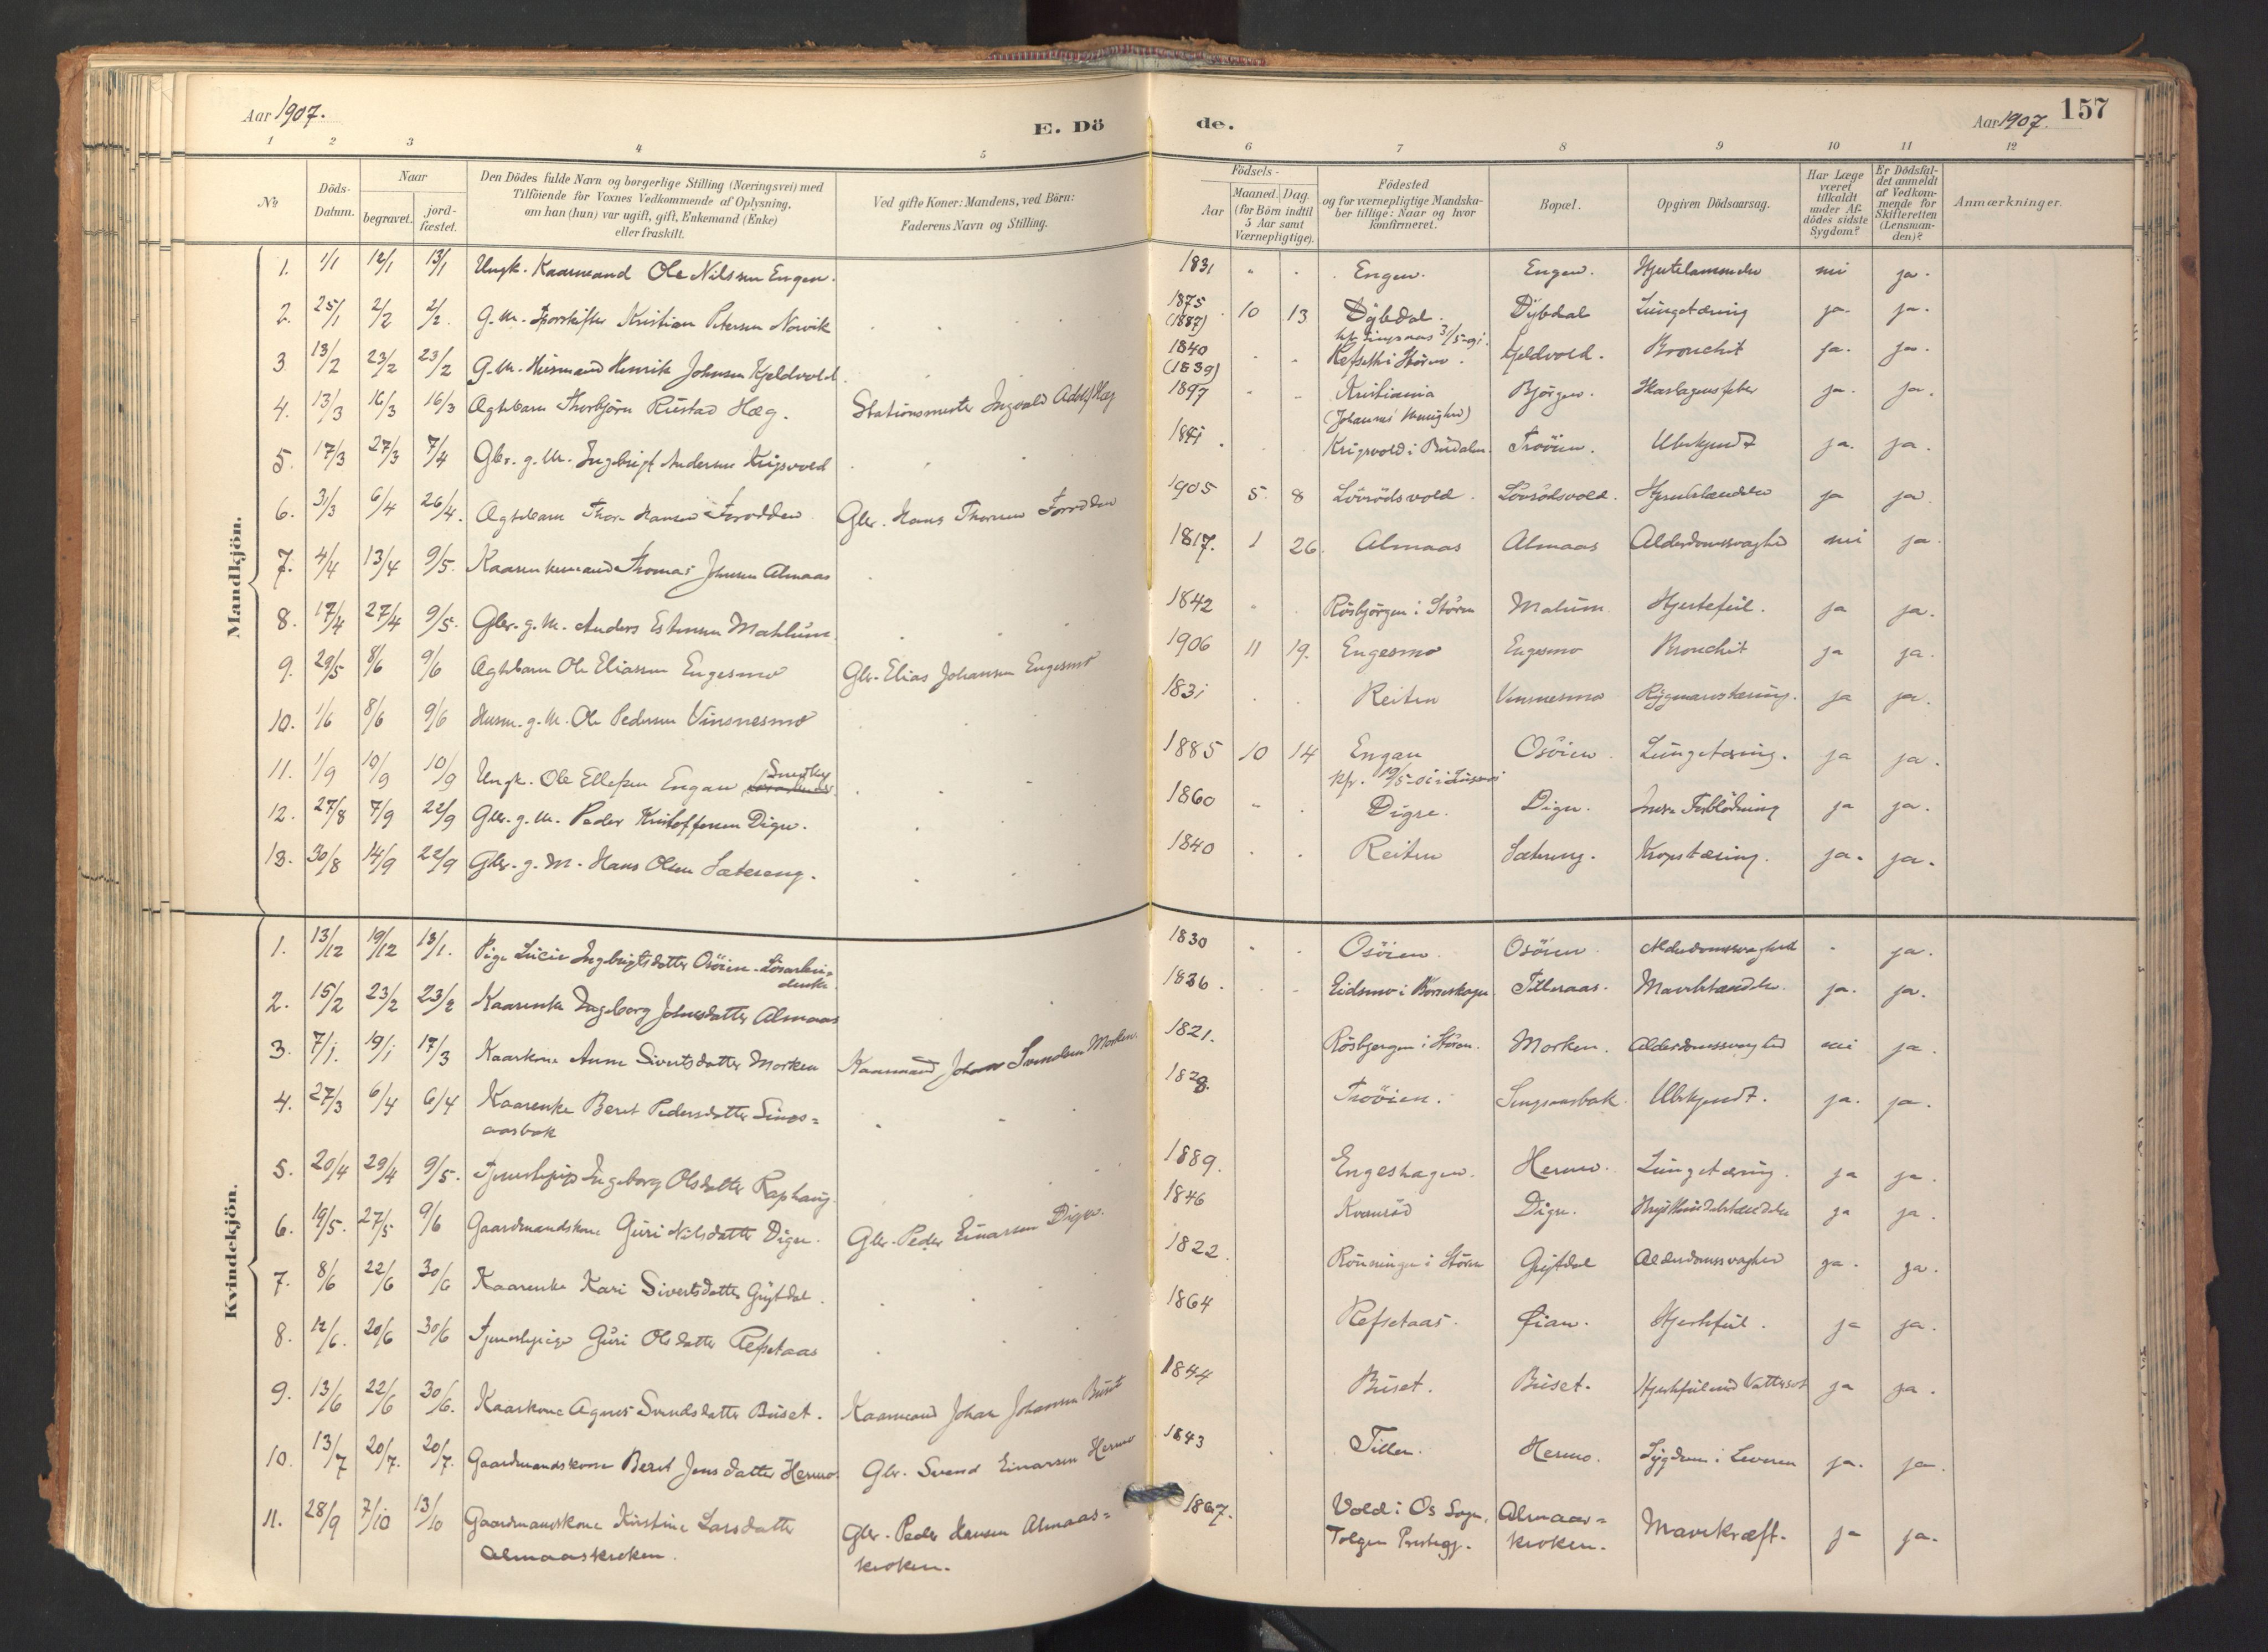 Aar 1907.
E. Dö
de.
Aar 1907.
157
1 2 3 4 5 6 7 8 9 10 11 12
№
Döds-
Datum.
Naar
begravet.
jord-
fæstet.
Den Dödes fulde Navn og borgerlige Stilling (Næringsvei) med
Tilföiende for Voxnes Vedkommende af Oplysning,
om han (hun) var ugift, gift, Enkemand (Enke)
eller fraskilt.
Ved gifte Koner: Mandens, ved Börn:
Faderens Navn og Stilling.
Födsels-
Aar
Maaned. Dag.
(for Börn indtil
5 Aar samt
Værnepligtige).
Födested
og for værnepligtige Mandska-
ber tillige: Naar og hvor
konfirmeret.
Bopæl.
Opgiven Dödsaarsag.
Har Læge
været
tilkaldt
under Af-
dödes sidste
Sygdom?
Er Dödsfal-
det anmeldt
af Vedkom-
mende for
Skifteretten
(Lensman-
den)?
Anmærkninger.
Mandkjön.
1. 1/1 12/1 13/1 Ungk. Kaarmand Ole Nilssen Engen. 1831 Engen. Engen. nei ja.
2. 25/1 2/2 2/2. G. M. Kristian Petersen Norvik 1875 (1887) 10 13 Dybdal. Dybdal Lungetæring ja. ja.
3 13/2 23/2 23/2 G. M. Husmand Henrik Johnsen Kjeldvold 1840 (1839) Refseth i Støren. Kjeldvold. Bronchit ja. ja.
4. 13/3 16/3 16/3 Ægtebarn Thorbjörn Rustad Hæg. Stationsmester Ingvald Adolf Hæg 1897 Kristiania Bjørgen. Skarlagensfeber ja. ja.
5. 17/3 27/3 7/4 Gbr. g. M. Ingebrigt Andersen Krigsvold 1841 Krigsvold i Budalen. Trøien. Ubekjendt ja. ja.
6. 31/3 6/4 26/4. Ægtebarn Thor Hansen Forodden Gbr. Hans Thorsen Forodden 1905 5. 8 Løvrødsvold. Løvrødsvold. ja ja
7. 4/4 13/4 9/5. Kaarenkemand Thomas Johnsen Almaas 1817. 1 26. Almaas Almaas Alderdomssvaghed nei ja
8. 17/4 27/4 9/5. Gbr. g. M. Anders Estensen Mahlum 1842 Rösbjörgen i Stören Malum Hjertefeil. ja ja.
9. 29/5 8/6 9/6 Ægtebarn Ole Eliassen Engesmo Gbr. Elias Johansen Engesmo 1906 11 19. Engesmo Engesmo Bronchit ja ja.
10. 1/6 8/6 9/6 Husm. g. M. Ole Pedersen Vinsnesmo 1831 Reiten Vinsnesmo Rygmarvstæring. ja ja.
11. 1/9 10/9 10/9 Ungk. Ole Ellefsen Engan 1885 10 14 Engan Osöien Lungetæring. ja ja.
12. 27/8 7/9 22/9 Gbr. g. M. Peder Kristoffersen Digre. 1860 Digre. Digre. Indre Forblödning ja ja.
13. 30/8 14/9 22/9 Gbr. g. M. Hans Olsen Sætereng. 1840 Reiten Sætereng. Kropstæring. ja. ja.
Kvindekjön.
1. 13/12 19/12 13/1. Pige Lucie Ingebrigtsdatter Osöien Lösarbei-
derske 1830 Osöien. Osöien. Alderdomssvaghed - ja.
2. 15/2 23/2 23/2 Kaarenke Ingeborg Johnsdatter Almaas 1836. Eidsmo i Børseskogn Tilleraas. ja. ja.
3. 7/1. 19/1 17/3 Kaarkone Anne Sivertsdatter Morken Kaarmand Johan Svendsen Morken. 1821. Rösbjergen i Støren. Morken. Alderdomssvaghed nei ja.
4. 27/3 6/4 6/4 Kaarenke Beret Pedersdatter Sings=
aasbak 1828. Trøien. Singsaasbak. Ubekjendt. ja. ja.
5. 20/4 29/4 9/5. Tjenestepige Ingeborg Olsdatter Raphaug. 1889. Engeshagen. Hermo. Lungetæring. ja ja.
6. 19/5. 27/5 9/6 Gaardmandskone Guri Nilsdatter Digre. Gbr. Peder Einarsen Digre. 1846 Kvamröd Digre. ja ja.
7. 8/6 22/6 30/6 Kaarenke Kari Sivertsdatter Grytdal. 1822. Rönningen i Stören Grytdal Alderdomssvaghed ja. ja.
8. 12/6. 20/6 30/6 Tjenestepige Guri Olsdatter Refsetaas 1864 Refsetaas. Øian. Hjertefeil. ja ja.
9. 13/6 22/6 30/6. Kaarkone Agnes Svendsdatter Buset. Kaarmand Johan Johansen Buset 1844 Buset. Buset. Hjertefeil med Vattersot ja ja.
10. 13/7 20/7. 20/7. Gaardmandskone Beret Jensdatter Hermo. Gbr. Svend Einarsen Hermo 1843 Tiller. Hermo. Sygdom i Leveren ja. ja.
11. 28/9 7/10 13/10 Gaardmandskone Kirstine Larsdatter
Almaaskroken. Gbr. Peder Hansen Almaas=
kroken. 1867. Vold i Os Sogn,
Tolgen Prestegj. Almaas=
kroken. Mavekræft. ja ja.